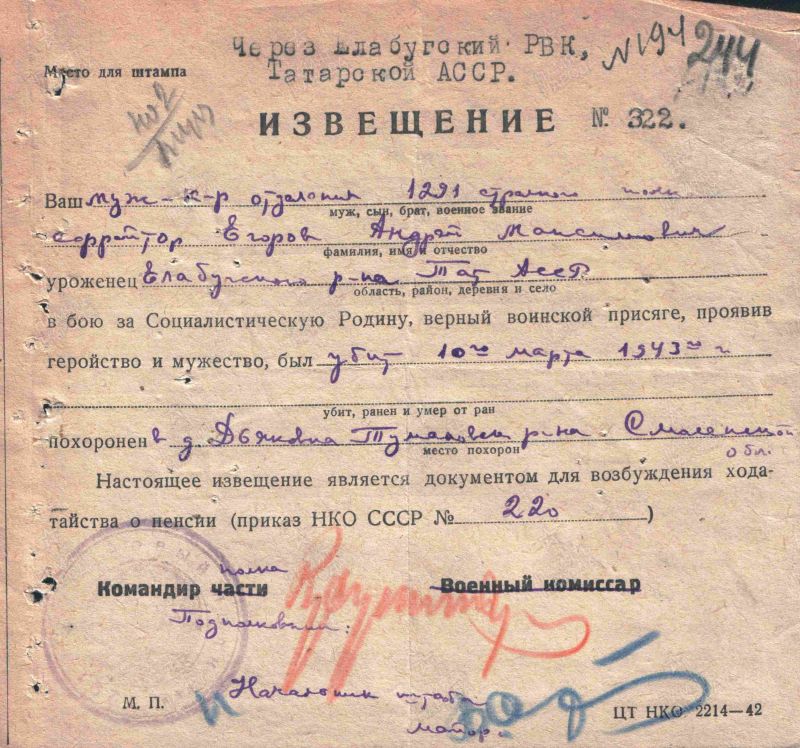 Через Елабугский РВК, №194 244
Место для штампа Татарской АССР.
ИЗВЕЩЕНИЕ № 322.
Ваш муж – к-р отделения 1291 стрелкового полка
муж, сын, брат, военное звание
Егоров Андрей Максимович
фамилия, имя и отчество
уроженец Елабужского р-на Тат АССР
область, район, деревня и село
в бою за Социалистическую Родину, верный воинской присяге, проявив
геройство и мужество, был убит 10го марта 1943го г
убит, ранен и умер от ран
похоронен в д. Дьяковка Тумановск р-на Смоленской
место похорон обл.
Настоящее извещение является документом для возбуждения хода-
тайства о пенсии (приказ НКО СССР № 220 )
полка
Командир части Военный комиссар
Подполковник:
Начальник штаба
М. П. ЦТ НКО 2214—42
майор: